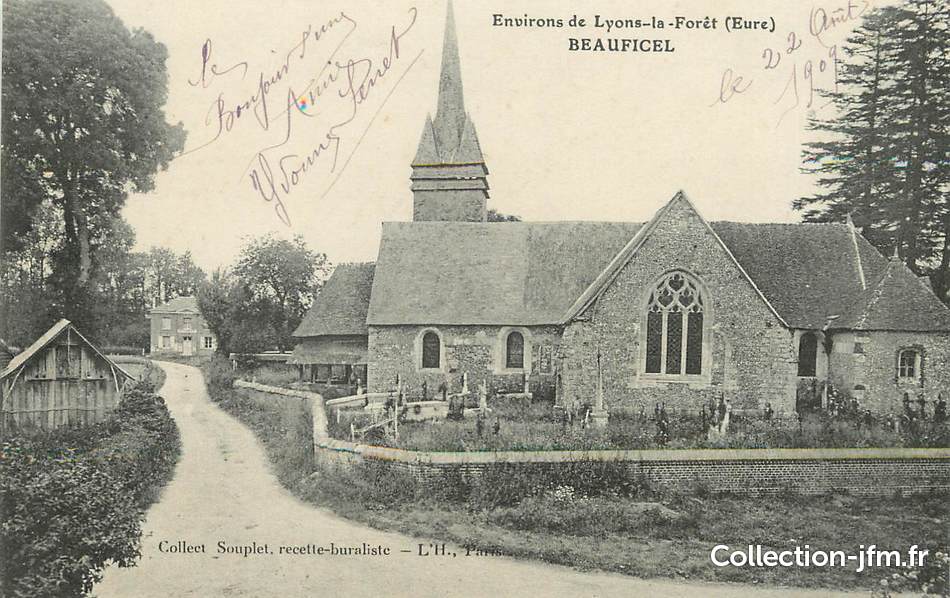 Environs de Lyons-la-Forêt (Eure)
BEAUFICEL
le 22 (Août
1909
le
Bonjour d'une
Amie
Yvonne
Collect Souplet, recette-buraliste – L'H., Paris
Collection-jfm.fr